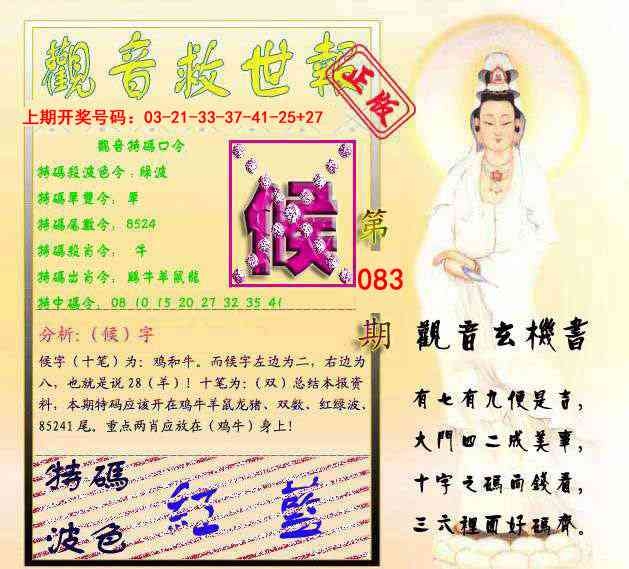 觀音救世報
正版
上期开奖号码：03-21-33-37-41-25+27
觀音特碼口令
特碼殺波色令：綠波
特碼單雙令：單
特碼尾數令：8524
特碼殺肖令： 牛
特碼出肖令：鷄牛羊鼠龍
特中碼令：08 10 15 20 27 32 35 41
候
第
083
期
分析:（候）字
候字（十笔）为：鸡和牛。而候字左边为二，右边为
八，也就是说 28（羊）！十笔为:（双）总结本报资
料，本期特码应该开在鸡牛羊鼠龙猪、双数、红绿波、
85241 尾。重点两肖应放在（鸡牛）身上！
特碼
波色
紅 藍
觀音玄機書
有七有九便是吉，
大門四二成美事，
十字之碼而錢看，
三六裡面好碼齊。